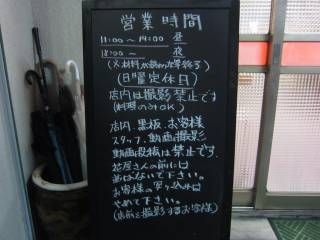 営業時間
11:00〜14:00 昼
18:00〜 夜
(※材料が終わり次第終了)
(日曜定休日)
店内は撮影禁止です
(料理のみOK)
店内、黒板、お客様
スタッフ、動画撮影
動画投稿は禁止です。
花屋さんの前に
並ばないで下さい。
お客様の
やめて下さい。
(店前を撮影するお客様)